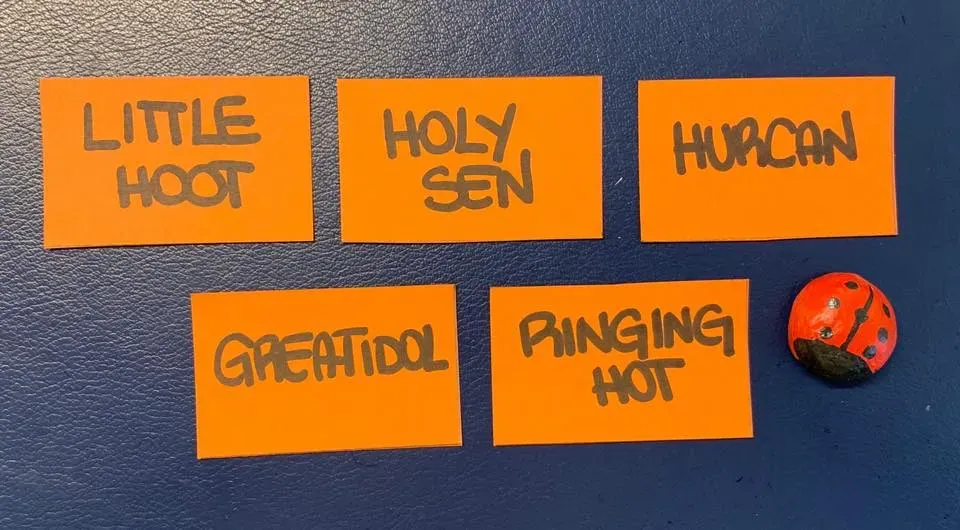 LITTLE
HOOT
HOLY
SEN
HURCAN
GREATIDOL
RINGING
HOT